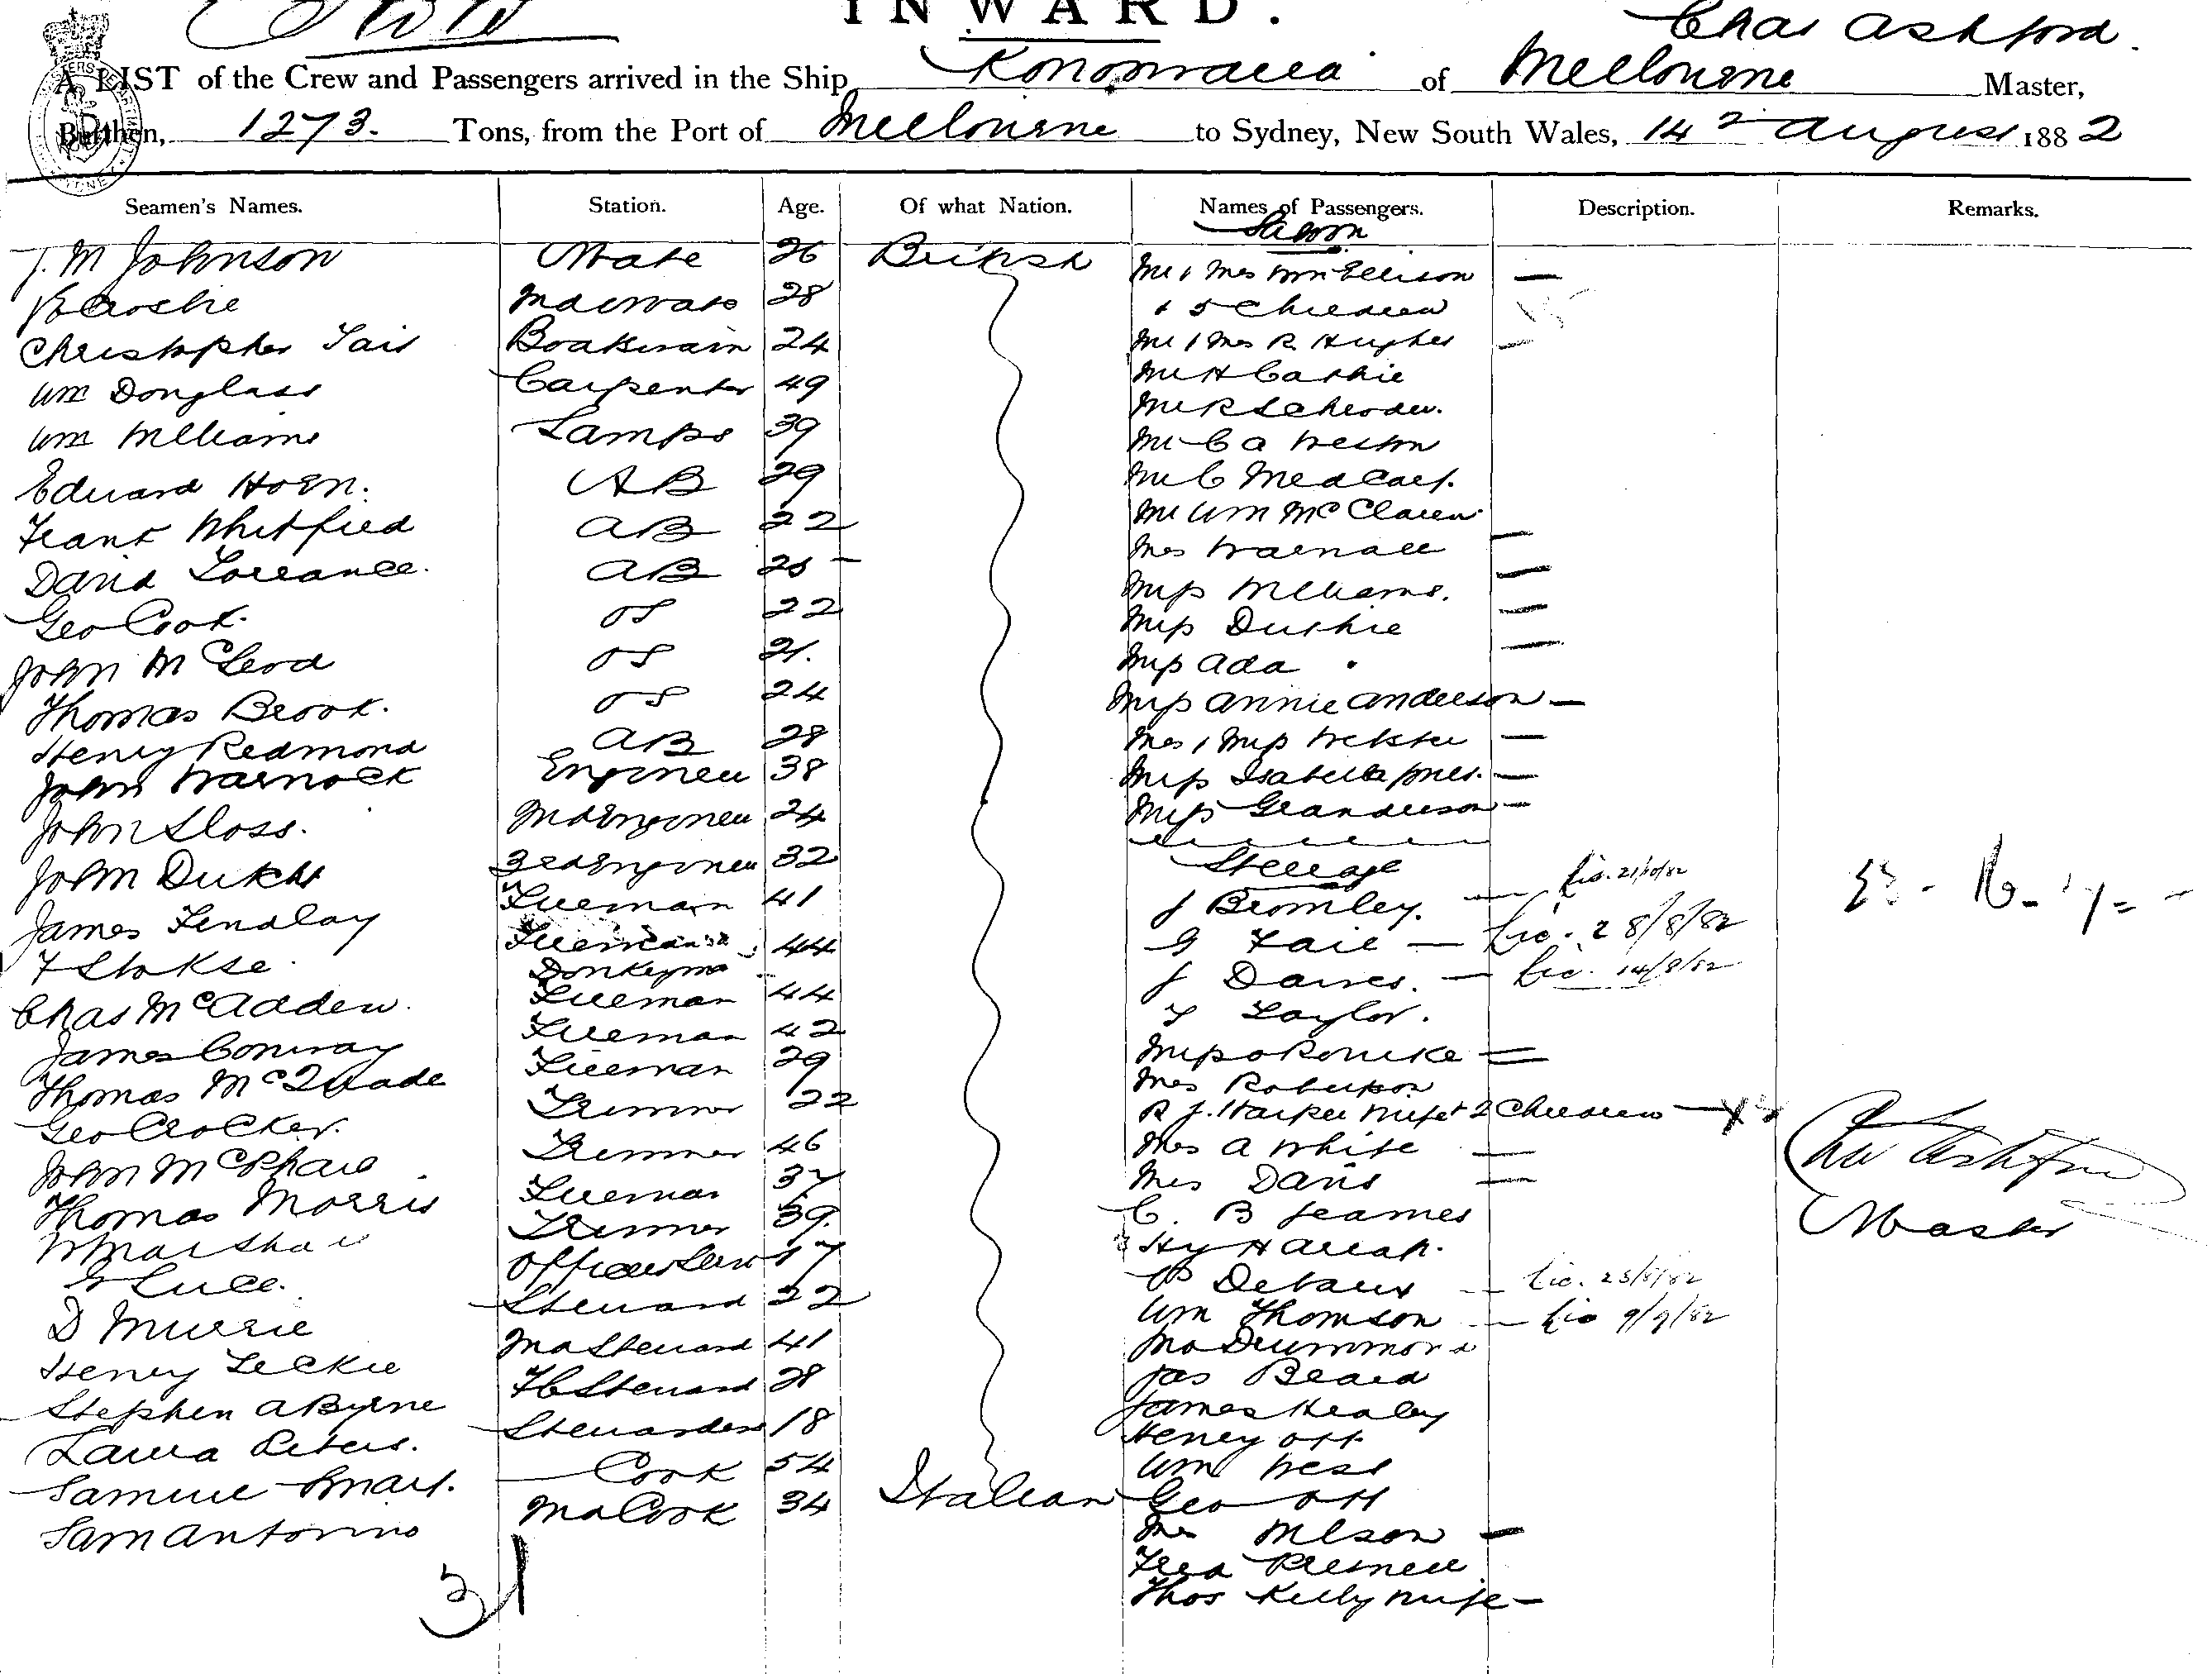 INWARD.
Chas Ashford.
A LIST of the Crew and Passengers arrived in the Ship Konoowarra of Melbourne Master,
Burthen, 1273. Tons, from the Port of Melbourne to Sydney, New South Wales, 14 August 1882
Seamen's Names. Station. Age. Of what Nation. Names of Passengers. Description. Remarks.
Saloon
J. M Johnson Mate 26 British Mr & Mrs Wm Ellison —
Roche 2nd Mate 28 & 5 Children
Christopher Tait Boatswain 24 Mr & Mrs R. Hughes —
Wm Douglass Carpenter 49 Mr H Cathie
Wm Williams Lamps 39 Mr R Schroder.
Edward Horn. AB 29 Mr C A Weston
Frank Whitfield AB 22 Mr C Medcalf.
David Torrance. AB 25 Mr Wm McClaren
Geo Cook. OS 22 Mrs Warnall —
John McLeod OS 21. Miss Williams. —
Thomas Brook. OS 24 Miss Duthie —
Henry Redmond AB 28 Miss Ada " —
John Warnock Engineer 38 Miss Annie Anderson —
John Sloss. 2nd Engineer 24 Mrs & Miss Webster —
John Dukes 3rd Engineer 32 Miss Isabella Jones. —
James Findlay Fireman 41 Miss G Anderson —
Steerage
F Stokse Fireman 44 J Bromley. — Lic. 21/10/82
Donkeyman G Fail — Lic. 28/8/82
Chas McAdden. Fireman 44 J Davies. — Lic. 14/9/82
James Conway Fireman 42 T Taylor.
Thomas McQuade Fireman 29 Miss O'Rourke —
Geo Crocker. Trimmer 22 Mrs Robertson
John McPhail Trimmer 46 R J. Harper Wife & 2 Children — X
Thomas Morris Fireman 37 Mrs A White —
W Marshall Trimmer 39. Mrs Davis —
G Luce. Officers Serv 17 C. B Jeames
D Murrie Steward 22 Hy Harrap.
Henry Leckie 2nd Steward 41 Wm Thomson — Lic 9/9/82
Stephen A Byrne FC Steward 28 Jno Drummond
Laura Peters. Stewardess 18 Jas Beard
Samuel Smart. Cook 54 James Healey
Sam Antonino 2nd Cook 34 Italian Henry Ott
Wm West
Geo Ott
Mrs Wilson —
Fred Presnell
Thos Kelly Wife —
Chas Ashford
Master
31